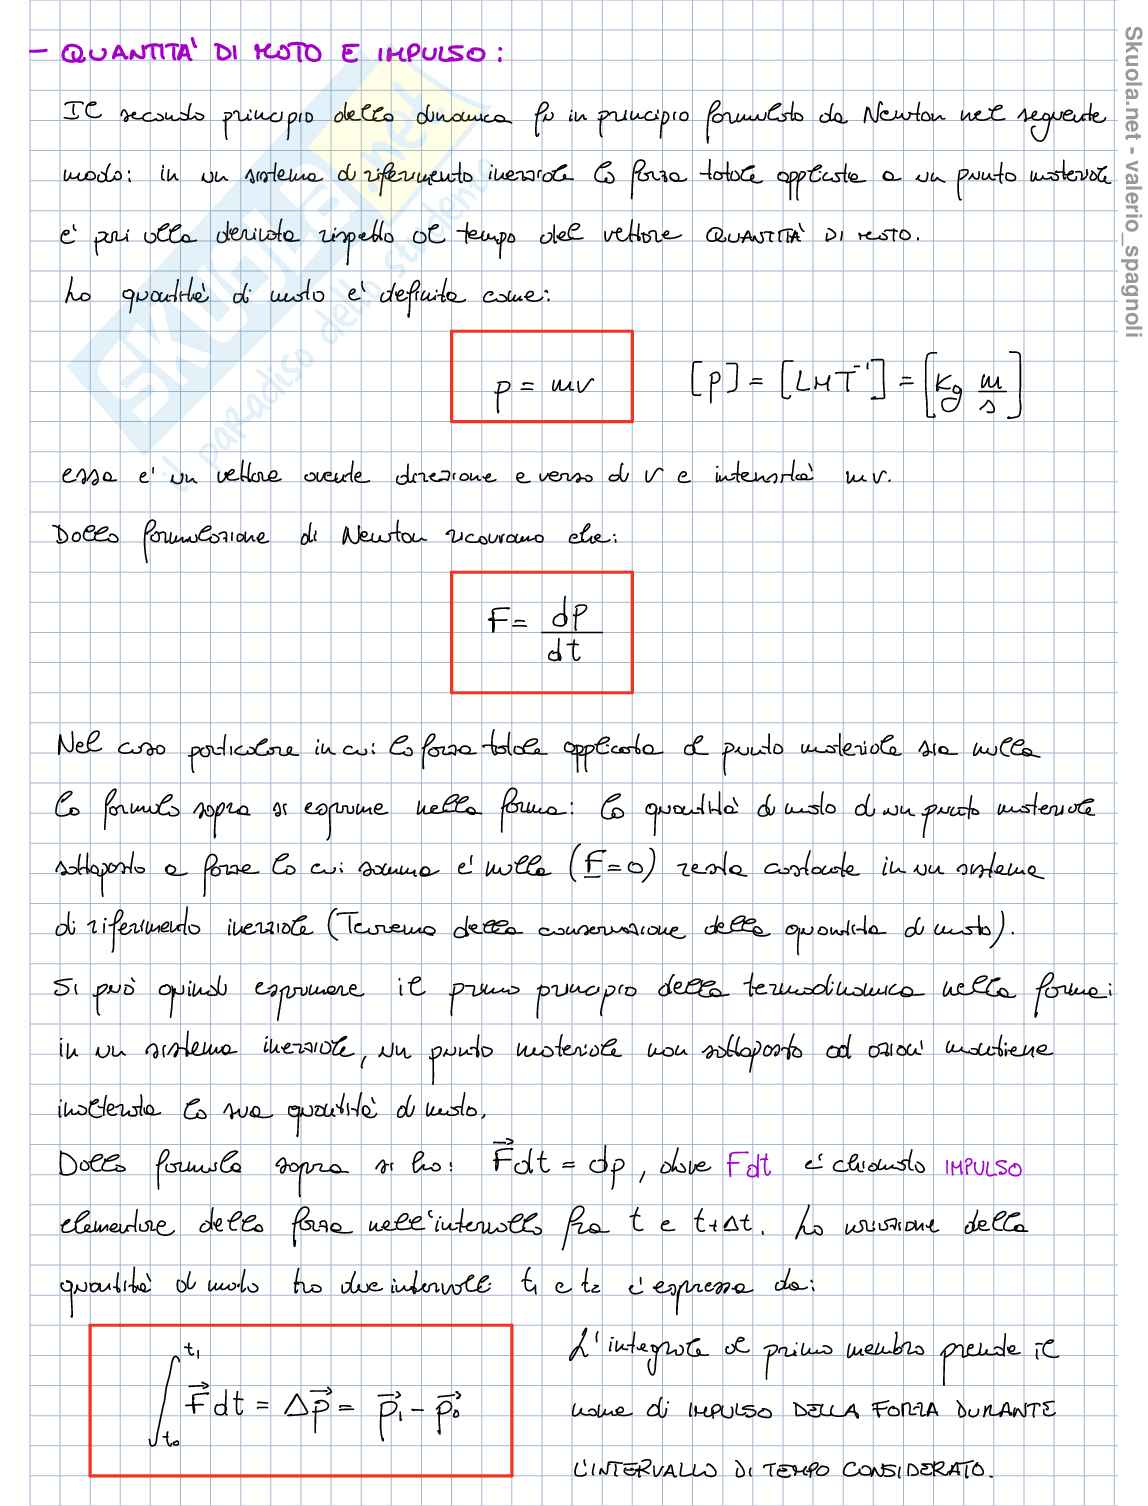 - QUANTITA' DI MOTO E IMPULSO:
Il secondo principio della dinamica fu in principio formulato da Newton nel seguente
modo: in un sistema di riferimento inerziale la forza totale applicata a un punto materiale
e' pari alla derivata rispetto al tempo del vettore QUANTITÀ DI MOTO.
La quantità di moto e' definita come:
p = mv [p] = [LMT⁻¹] = [Kg m/s]
essa e' un vettore avente direzione e verso di v e intensità mv.
Dalla formulazione di Newton ricaviamo che:
F = dp/dt
Nel caso particolare in cui la forza totale applicata al punto materiale sia nulla
la formula sopra si esprime nella forma: la quantità di moto di un punto materiale
sottoposto a forze la cui somma e' nulla (F=0) resta costante in un sistema
di riferimento inerziale (Teorema della conservazione della quantità di moto).
Si può quindi esprimere il primo principio della termodinamica nella forma:
in un sistema inerziale, un punto materiale non sottoposto ad azioni mantiene
inalterata la sua quantità di moto.
Dalla formula sopra si ha: F⃗dt = dp, dove Fdt e' chiamato IMPULSO
elementare della forza nell'intervallo fra t e t+Δt. La variazione della
quantità di moto tra due intervalli t₁ e t₂ e' espressa da:
∫ₜ₀ᵗ¹ F⃗dt = Δp⃗ = p⃗₁ - p⃗₀
L'integrale al primo membro prende il
nome di IMPULSO DELLA FORZA DURANTE
L'INTERVALLO DI TEMPO CONSIDERATO.
Skuola.net - valerio_spagnoli
SKUOLA.net
il paradiso dello studente